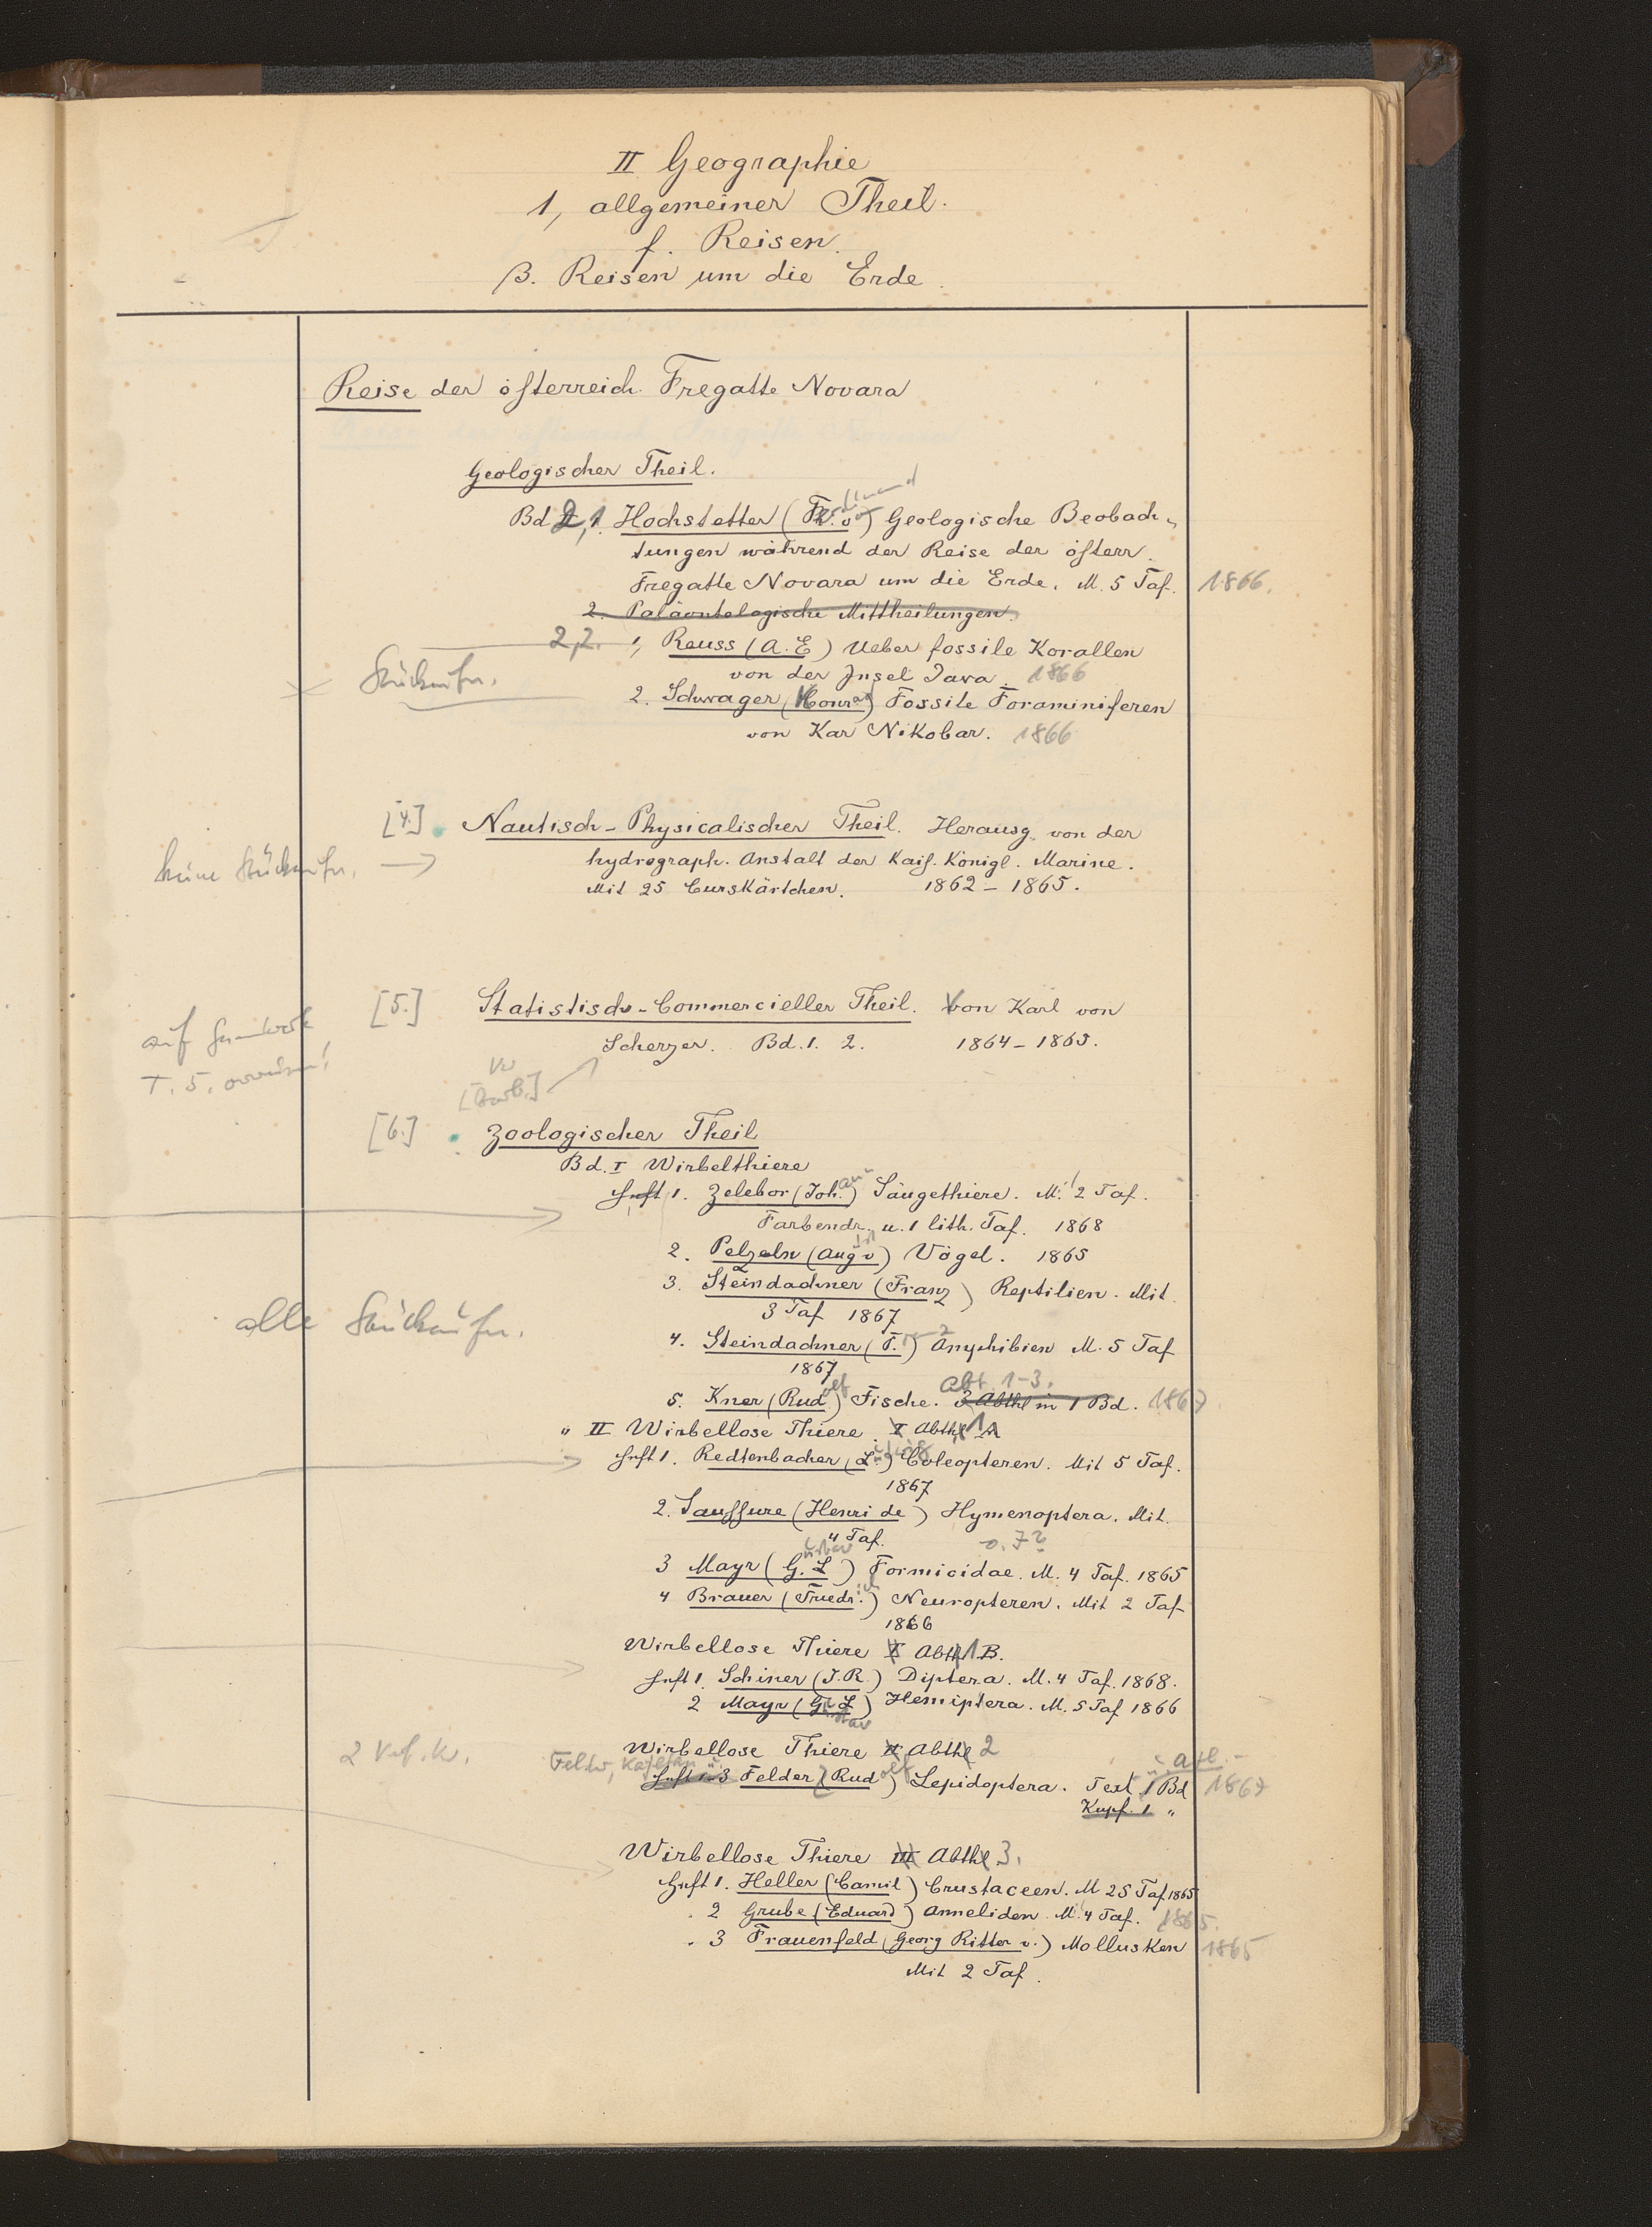 II Geographie
1, allgemeiner Theil.
f. Reisen.
β. Reisen um die Erde.
Reise der österreich. Fregatte Novara
Geologischer Theil.
Bd 2,1. Hochstetter (F. v) Geologische Beobach-
tungen während der Reise der österr.
Fregatte Novara um die Erde. M. 5 Taf. 1866.
2. Paläontologische Mittheilungen.
2,2. 1, Reuss (A. E) Ueber fossile Korallen
von der Insel Java. 1866
2. Schwager (Conrad) Fossile Foraminiferen
von Kar Nikobar. 1866
[4.] Nautisch-Physicalischer Theil. Herausg. von der
hydrograph. Anstalt der Kais. Königl. Marine.
Mit 25 Curskärtchen. 1862-1865.
[5.] Statistisch-Commercieller Theil. Von Karl von
Scherzer. Bd. 1. 2. 1864-1865.
auf
T. 5.
[6.] Zoologischer Theil
Bd. I Wirbelthiere
Heft 1. Zelebor (Johann) Säugethiere. M. 2 Taf.
Farbendr. u. 1 lith. Taf. 1868
2. Pelzeln (Aug v) Vögel. 1865
3. Steindachner (Franz) Reptilien. Mit
3 Taf 1867
alle
4. Steindachner (F.) Amphibien M. 5 Taf
1867
5. Kner (Rudolf) Fische. Abt. 1-3. 3 Abthl in 1 Bd. 1867
" II Wirbellose Thiere. I Abthl 1 A
Heft 1. Redtenbacher (L.) Coleopteren. Mit 5 Taf.
1867
2. Saussure (Henri de) Hymenoptera. Mit
4 Taf. o. J?
3 Mayr (G. L) Formicidae. M. 4 Taf. 1865
4 Brauer (Friedr.) Neuropteren. Mit 2 Taf
1866
Wirbellose Thiere I Abth 1.B.
Heft 1. Schiner (J. R.) Diptera. M. 4 Taf. 1868.
2 Mayr (G. L) Hemiptera. M. 5 Taf 1866
Wirbellose Thiere II Abthl 2
Heft 1-3 Felder (Rudolf) Lepidoptera. Text 1 Bd 1867
Kupf. 1 "
Wirbellose Thiere III Abthl 3.
Heft 1. Heller (Camil) Crustaceen. M 25 Taf. 1865
. 2 Grube (Eduard) Anneliden. M. 4 Taf. 1865.
. 3 Frauenfeld (Georg Ritter v.) Mollusken 1865
Mit 2 Taf.